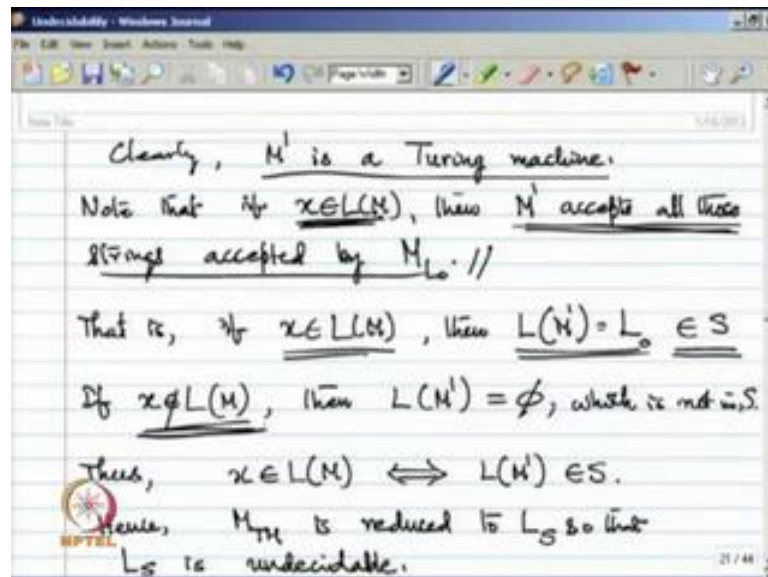 Undecidability - Windows Journal
File Edit View Insert Actions Tools Help
Page Width
Note Title
Clearly, M' is a Turing machine.
Note that if x∈L(M), then M' accepts all those
strings accepted by M_L₀. //
That is, if x∈L(M), then L(M') = L₀ ∈ S
If x∉L(M), then L(M') = ϕ, which is not in S.
Thus, x ∈ L(M) ⟺ L(M') ∈ S.
Hence, M_TM is reduced to L_S so that
NPTEL
L_S is undecidable.
21 / 44